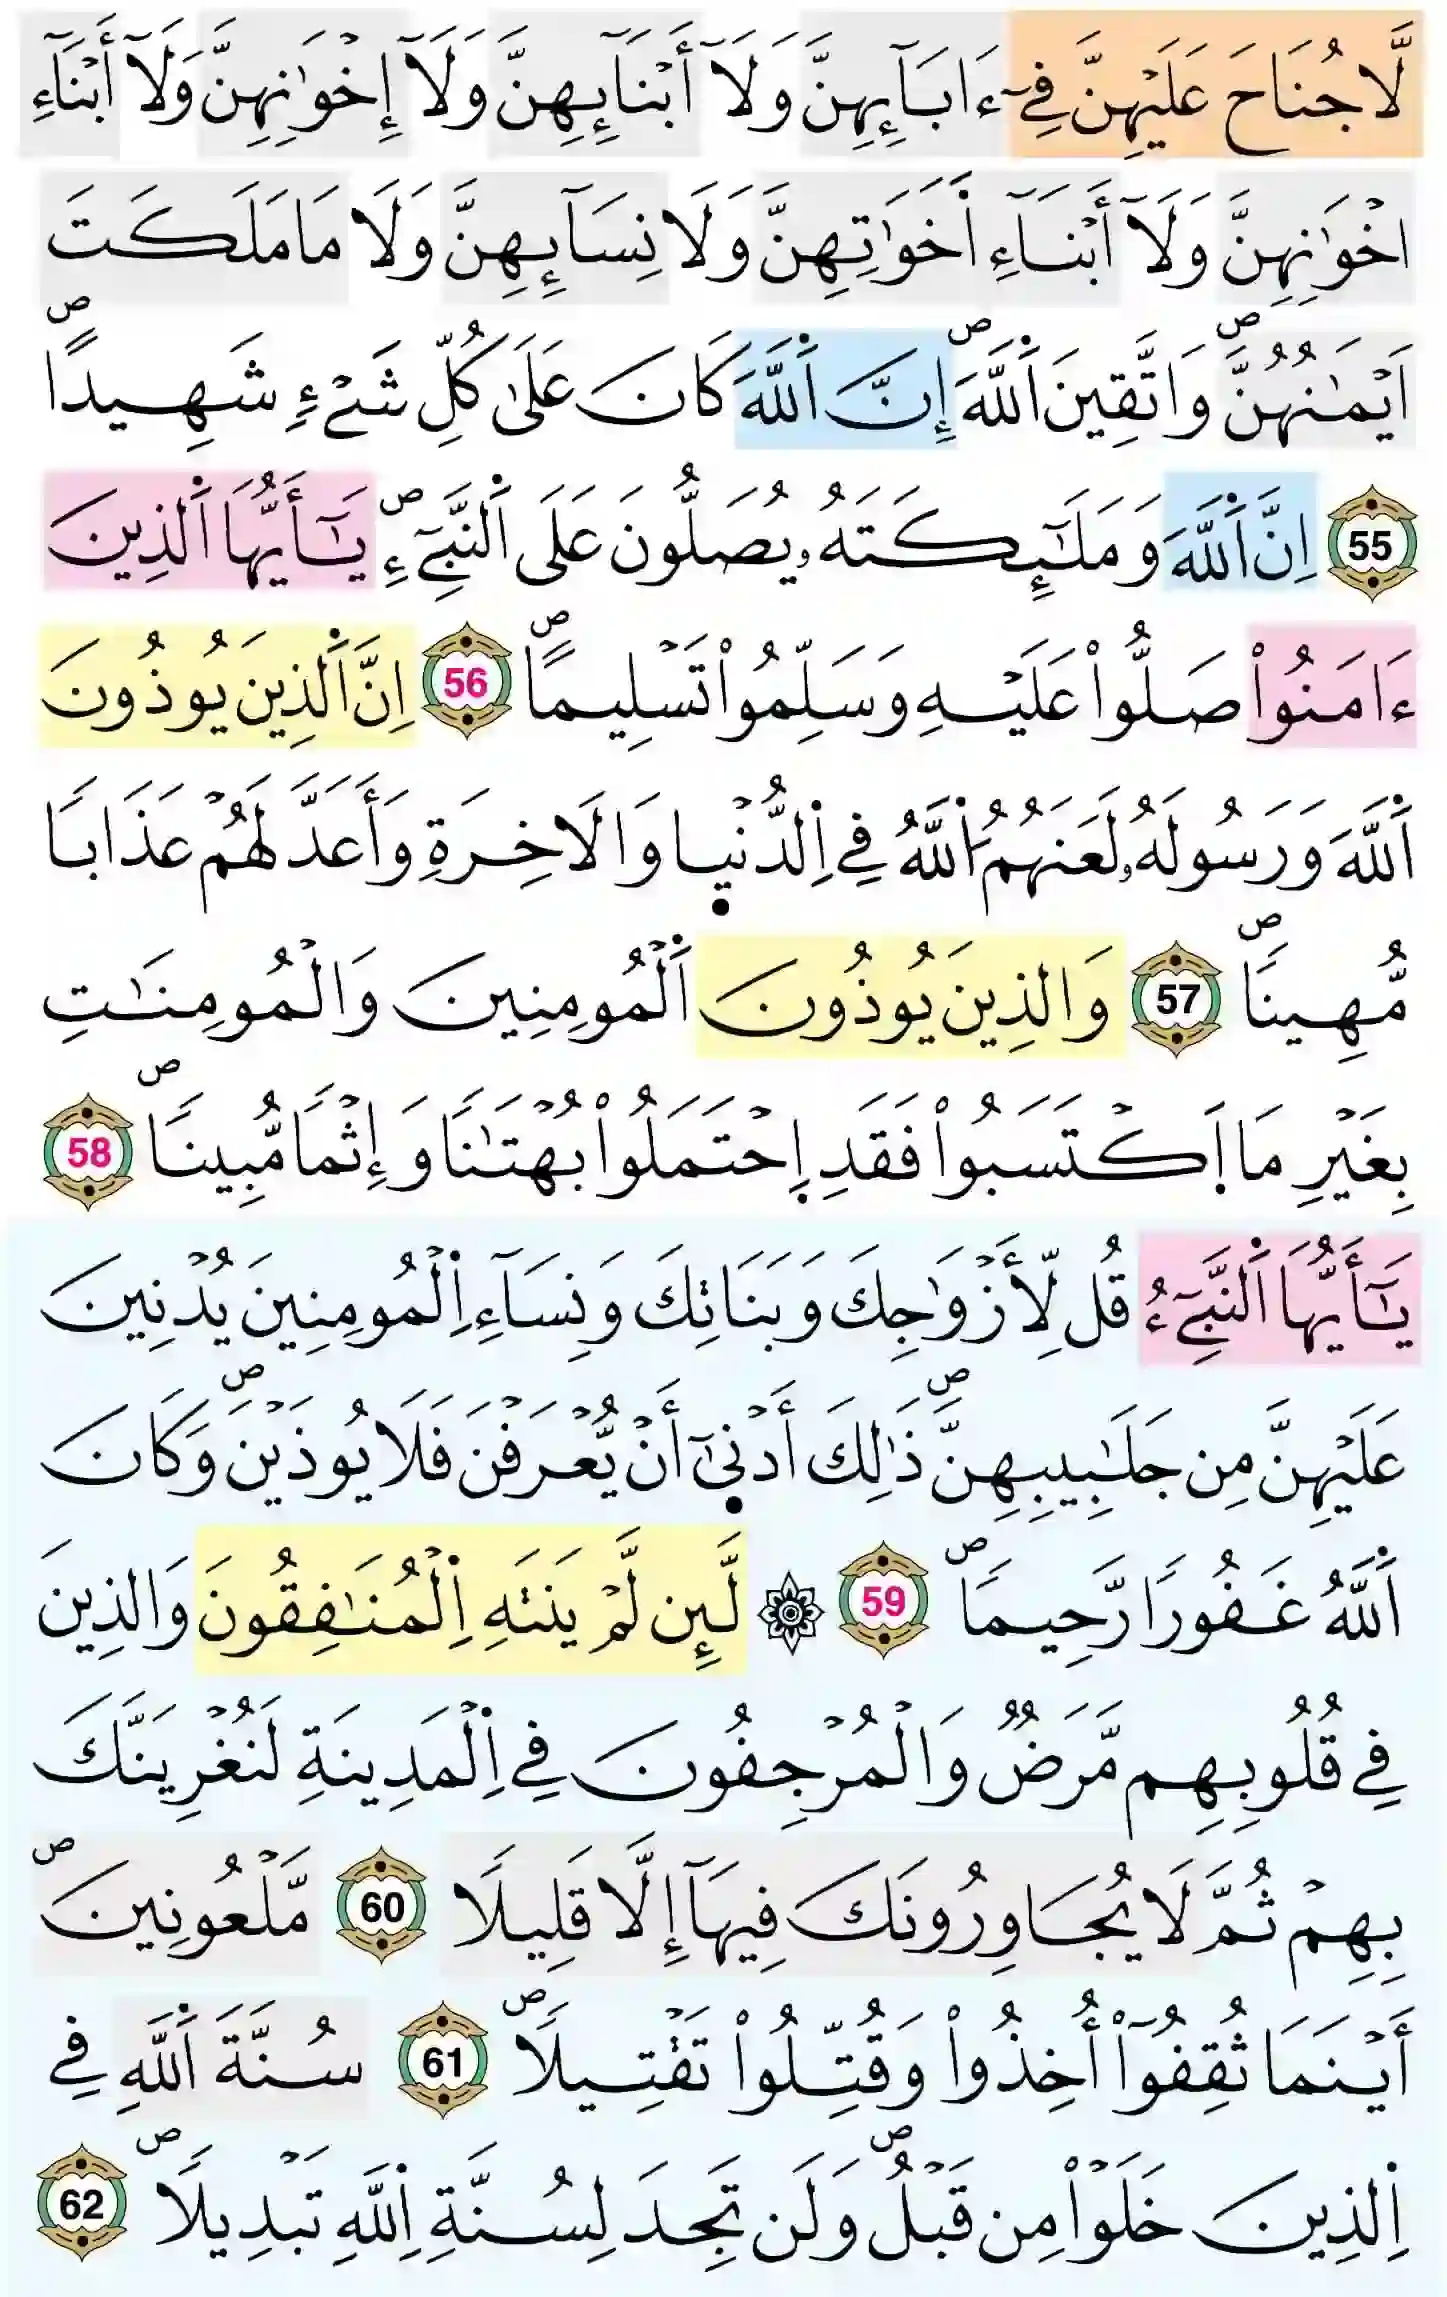 لَّا جُنَاحَ عَلَيْهِنَّ فِےٓ ءَابَآئِهِنَّ وَلَآ أَبْنَآئِهِنَّ وَلَآ إِخْوَٰنِهِنَّ وَلَآ أَبْنَآءِ
اِ۪خْوَٰنِهِنَّ وَلَآ أَبْنَآءِ اَ۬خَوَٰتِهِنَّ وَلَا نِسَآئِهِنَّ وَلَا مَا مَلَكَتَ
اَيْمَٰنُهُنَّۖ وَاتَّقِينَ اَ۬للَّهَۖ إِنَّ اَ۬للَّهَ كَانَ عَلَىٰ كُلِّ شَےْءٖ شَهِيداًۖ
55 اِنَّ اَ۬للَّهَ وَمَلَٰٓئِكَتَهُۥ يُصَلُّونَ عَلَى اَ۬لنَّبِےٓءِۖ يَٰٓأَيُّهَا اَ۬لذِينَ
ءَامَنُواْ صَلُّواْ عَلَيْهِ وَسَلِّمُواْ تَسْلِيماًۖ 56 اِنَّ اَ۬لذِينَ يُوذُونَ
اَ۬للَّهَ وَرَسُولَهُۥ لَعَنَهُمُ اُ۬للَّهُ فِے اِ۬لدُّنْي۪ا وَالَاخِرَةِ وَأَعَدَّ لَهُمْ عَذَاباٗ
مُّهِيناٗۖ 57 وَالذِينَ يُوذُونَ اَ۬لْمُومِنِينَ وَالْمُومِنَٰتِ
بِغَيْرِ مَا اَ۪كْتَسَبُواْ فَقَدِ اِ۪حْتَمَلُواْ بُهْتَٰناٗ وَإِثْماٗ مُّبِيناٗۖ 58
يَٰٓأَيُّهَا اَ۬لنَّبِےٓءُ قُل لِّأَزْوَٰجِكَ وَبَنَاتِكَ وَنِسَآءِ اِ۬لْمُومِنِينَ يُدْنِينَ
عَلَيْهِنَّ مِن جَلَٰبِيبِهِنَّۖ ذَٰلِكَ أَدْن۪ىٰٓ أَنْ يُّعْرَفْنَ فَلَا يُوذَيْنَۖ وَكَانَ
اَ۬للَّهُ غَفُوراٗ رَّحِيماٗۖ 59 ۞ لَّئِن لَّمْ يَنتَهِ اِ۬لْمُنَٰفِقُونَ وَالذِينَ
فِے قُلُوبِهِم مَّرَضٞ وَالْمُرْجِفُونَ فِے اِ۬لْمَدِينَةِ لَنُغْرِيَنَّكَ
بِهِمْ ثُمَّ لَا يُجَاوِرُونَكَ فِيهَآ إِلَّا قَلِيلاٗ 60 مَّلْعُونِينَۖ
أَيْنَمَا ثُقِفُوٓاْ أُخِذُواْ وَقُتِّلُواْ تَقْتِيلاٗۖ 61 سُنَّةَ اَ۬للَّهِ فِے
اِ۬لذِينَ خَلَوْاْ مِن قَبْلُۖ وَلَن تَجِدَ لِسُنَّةِ اِ۬للَّهِ تَبْدِيلاٗۖ 62